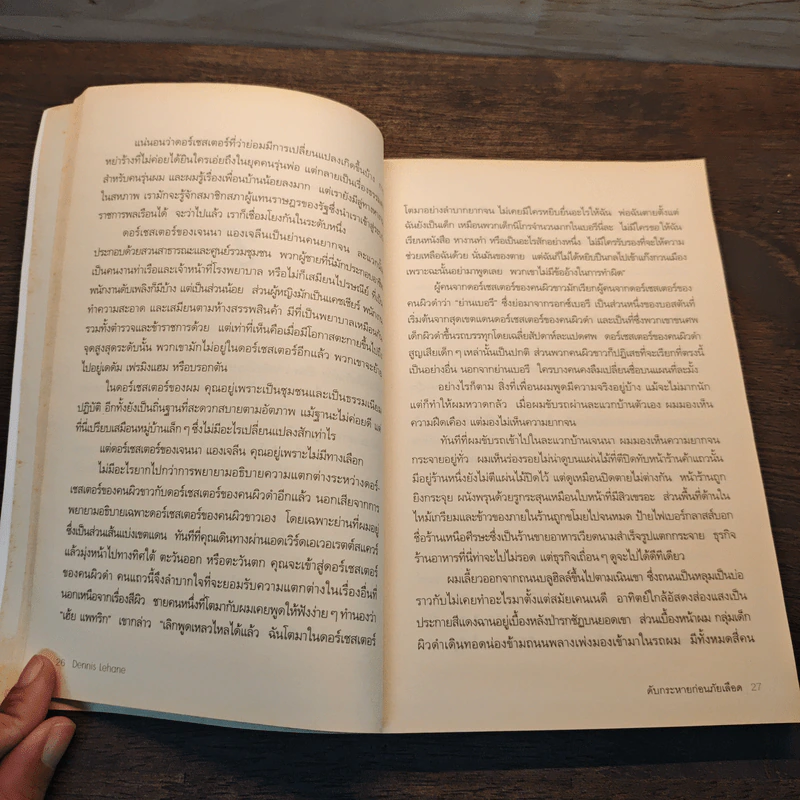 แน่นอนว่าดอร์เชสเตอร์ที่ว่าย่อมมีการเปลี่ยนแปลงเกิดขึ้นบ้าง
หย่าร้างที่ไม่ค่อยได้ยินใครเอ่ยถึงในยุคคนรุ่นพ่อ แต่กลายเป็นเรื่องธรรมดา
สำหรับคนรุ่นผม และผมรู้เรื่องเพื่อนบ้านน้อยลงมาก แต่เรายังมี
ในสหภาพ เรามักจะรู้จักสมาชิกสภาผู้แทนราษฎรของรัฐซึ่งนำเราเข้าสู่
ราชการพลเรือนได้ จะว่าไปแล้ว เราก็เชื่อมโยงกันในระดับหนึ่ง
ดอร์เชสเตอร์ของเจนนา แองเจลีนเป็นย่านคนยากจน ละแวกนั้น
ประกอบด้วยสวนสาธารณะและศูนย์รวมชุมชน พวกผู้ชายที่นี่มักประกอบอาชีพ
เป็นคนงานท่าเรือและเจ้าหน้าที่โรงพยาบาล หรือไม่ก็เสมียนไปรษณีย์ ที่เป็น
พนักงานดับเพลิงก็มีบ้าง แต่เป็นส่วนน้อย ส่วนผู้หญิงมักเป็นแคชเชียร์ พนักงาน
ทำความสะอาด และเสมียนตามห้างสรรพสินค้า มีที่เป็นพยาบาลเหมือนกัน
รวมทั้งตำรวจและข้าราชการด้วย แต่เท่าที่เห็นคือเมื่อมีโอกาสตะกายขึ้นไปถึง
จุดสูงสุดระดับนั้น พวกเขามักไม่อยู่ในดอร์เชสเตอร์อีกแล้ว พวกเขาจะย้าย
ไปอยู่เดดัม เฟรมิงแฮม หรือบรอกตัน
ในดอร์เชสเตอร์ของผม คุณอยู่เพราะเป็นชุมชนและเป็นธรรมเนียม
ปฏิบัติ อีกทั้งยังเป็นถิ่นฐานที่สะดวกสบายตามอัตภาพ แม้ฐานะไม่ค่อยดี แต่
ที่นี่เปรียบเสมือนหมู่บ้านเล็กๆ ซึ่งไม่มีอะไรเปลี่ยนแปลงสักเท่าไร
แต่ดอร์เชสเตอร์ของเจนนา แองเจลีน คุณอยู่เพราะไม่มีทางเลือก
ไม่มีอะไรยากไปกว่าการพยายามอธิบายความแตกต่างระหว่างดอร์-
เชสเตอร์ของคนผิวขาวกับดอร์เชสเตอร์ของคนผิวดำอีกแล้ว นอกเสียจากการ
พยายามอธิบายเฉพาะดอร์เชสเตอร์ของคนผิวขาวเอง โดยเฉพาะย่านที่ผมอยู่
ซึ่งเป็นส่วนเส้นแบ่งเขตแดน ทันทีที่คุณเดินทางผ่านเอดเวิร์ดเอเวอเรตต์สแควร์
แล้วมุ่งหน้าไปทางทิศใต้ ตะวันออก หรือตะวันตก คุณจะเข้าสู่ดอร์เชสเตอร์
ของคนผิวดำ คนแถวนี้จึงลำบากใจที่จะยอมรับความแตกต่างในเรื่องอื่นที่
นอกเหนือจากเรื่องสีผิว ชายคนหนึ่งที่โตมากับผมเคยพูดให้ฟังง่ายๆ ทำนองว่า
"เฮ้ย แพทริก" เขากล่าว "เลิกพูดเหลวไหลได้แล้ว ฉันโตมาในดอร์เชสเตอร์
26 Dennis Lehane
โตมาอย่างลำบากยากจน ไม่เคยมีใครหยิบยื่นอะไรให้ฉัน พ่อฉันตายตั้งแต่
ฉันยังเป็นเด็ก เหมือนพวกเด็กนิโกรจำนวนมากในเบอรีนี่ละ ไม่มีใครขอให้ฉัน
เรียนหนังสือ หางานทำ หรือเป็นอะไรสักอย่างหนึ่ง ไม่มีใครรับรองที่จะให้ความ
ช่วยเหลือฉันด้วย นั่นมันของตาย แต่ฉันก็ไม่ได้หยิบปืนกลไปเข้าแก๊งกวนเมือง
เพราะฉะนั้นอย่ามาพูดเลย พวกเขาไม่มีข้ออ้างในการทำผิด"
ผู้คนจากดอร์เชสเตอร์ของคนผิวขาวมักเรียกผู้คนจากดอร์เชสเตอร์ของ
คนผิวดำว่า "ย่านเบอรี" ซึ่งย่อมาจากรอกซ์เบอรี เป็นส่วนหนึ่งของบอสตันที่
เริ่มต้นจากสุดเขตแดนดอร์เชสเตอร์ของคนผิวดำ และเป็นที่ซึ่งพวกเขาขนศพ
เด็กผิวดำขึ้นรถบรรทุกโดยเฉลี่ยสัปดาห์ละแปดศพ ดอร์เชสเตอร์ของคนผิวดำ
สูญเสียเด็กๆ เหล่านั้นเป็นปกติ ส่วนพวกคนผิวขาวก็ปฏิเสธที่จะเรียกที่ตรงนี้
เป็นอย่างอื่น นอกจากย่านเบอรี ใครบางคนคงลืมเปลี่ยนชื่อบนแผนที่ละมั้ง
อย่างไรก็ตาม สิ่งที่เพื่อนผมพูดมีความจริงอยู่บ้าง แม้จะไม่มากนัก
แต่ก็ทำให้ผมหวาดกลัว เมื่อผมขับรถผ่านละแวกบ้านตัวเอง ผมมองเห็น
ความฝืดเคือง แต่มองไม่เห็นความยากจน
ทันทีที่ผมขับรถเข้าไปในละแวกบ้านเจนนา ผมมองเห็นความยากจน
กระจายอยู่ทั่ว ผมเห็นร่องรอยไม่น่าดูบนแผ่นไม้ที่ตีปิดทับหน้าร้านค้าแถวนั้น
มีอยู่ร้านหนึ่งยังไม่ตีแผ่นไม้ปิดไว้ แต่ดูเหมือนปิดตายไม่ต่างกัน หน้าร้านถูก
ยิงกระจุย ผนังพรุนด้วยรูกระสุนเหมือนใบหน้าที่มีสิวเขรอะ ส่วนพื้นที่ด้านใน
ไหม้เกรียมและข้าวของภายในร้านถูกขโมยไปจนหมด ป้ายไฟเบอร์กลาสส์บอก
ชื่อร้านเหนือศีรษะซึ่งเป็นร้านขายอาหารเวียดนามสำเร็จรูปแตกกระจาย ธุรกิจ
ร้านอาหารที่นี่ท่าจะไปไม่รอด แต่ธุรกิจเถื่อนๆ ดูจะไปได้ดีทีเดียว
ผมเลี้ยวออกจากถนนบลูฮิลล์ขึ้นไปตามเนินเขา ซึ่งถนนเป็นหลุมเป็นบ่อ
ราวกับไม่เคยทำอะไรมาตั้งแต่สมัยเคนเนดี อาทิตย์ใกล้อัสดงส่องแสงเป็น
ประกายสีแดงฉานอยู่เบื้องหลังป่ารกชัฏบนยอดเขา ส่วนเบื้องหน้าผม กลุ่มเด็ก
ผิวดำเดินทอดน่องข้ามถนนพลางเพ่งมองเข้ามาในรถผม มีทั้งหมดสี่คน
ดับกระหายก่อนภัยเลือด 27